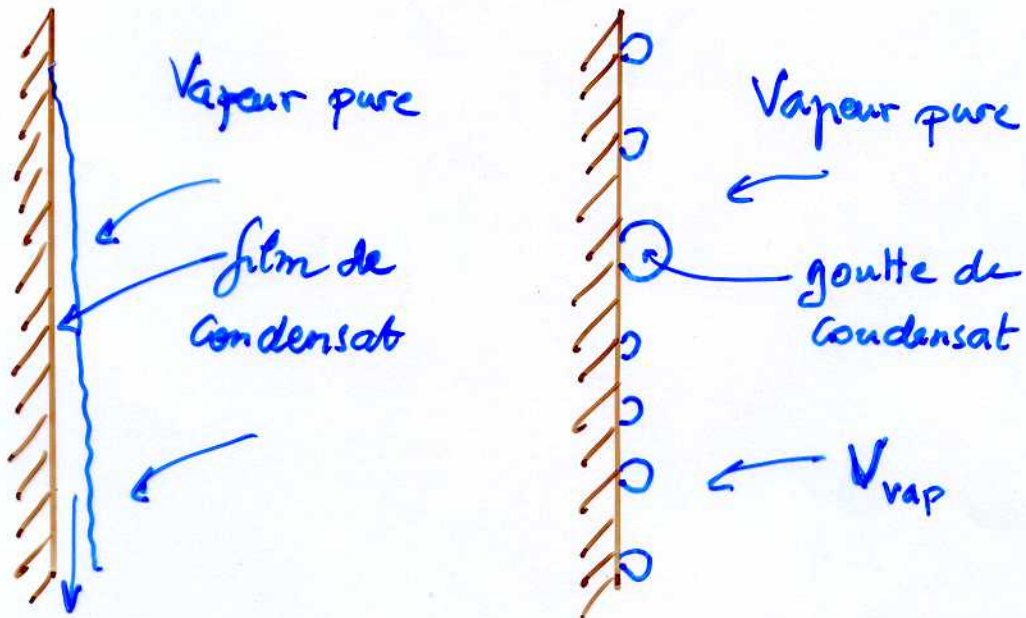 Vapeur pure
film de
condensat
Vapeur pure
goutte de
condensat
V vap